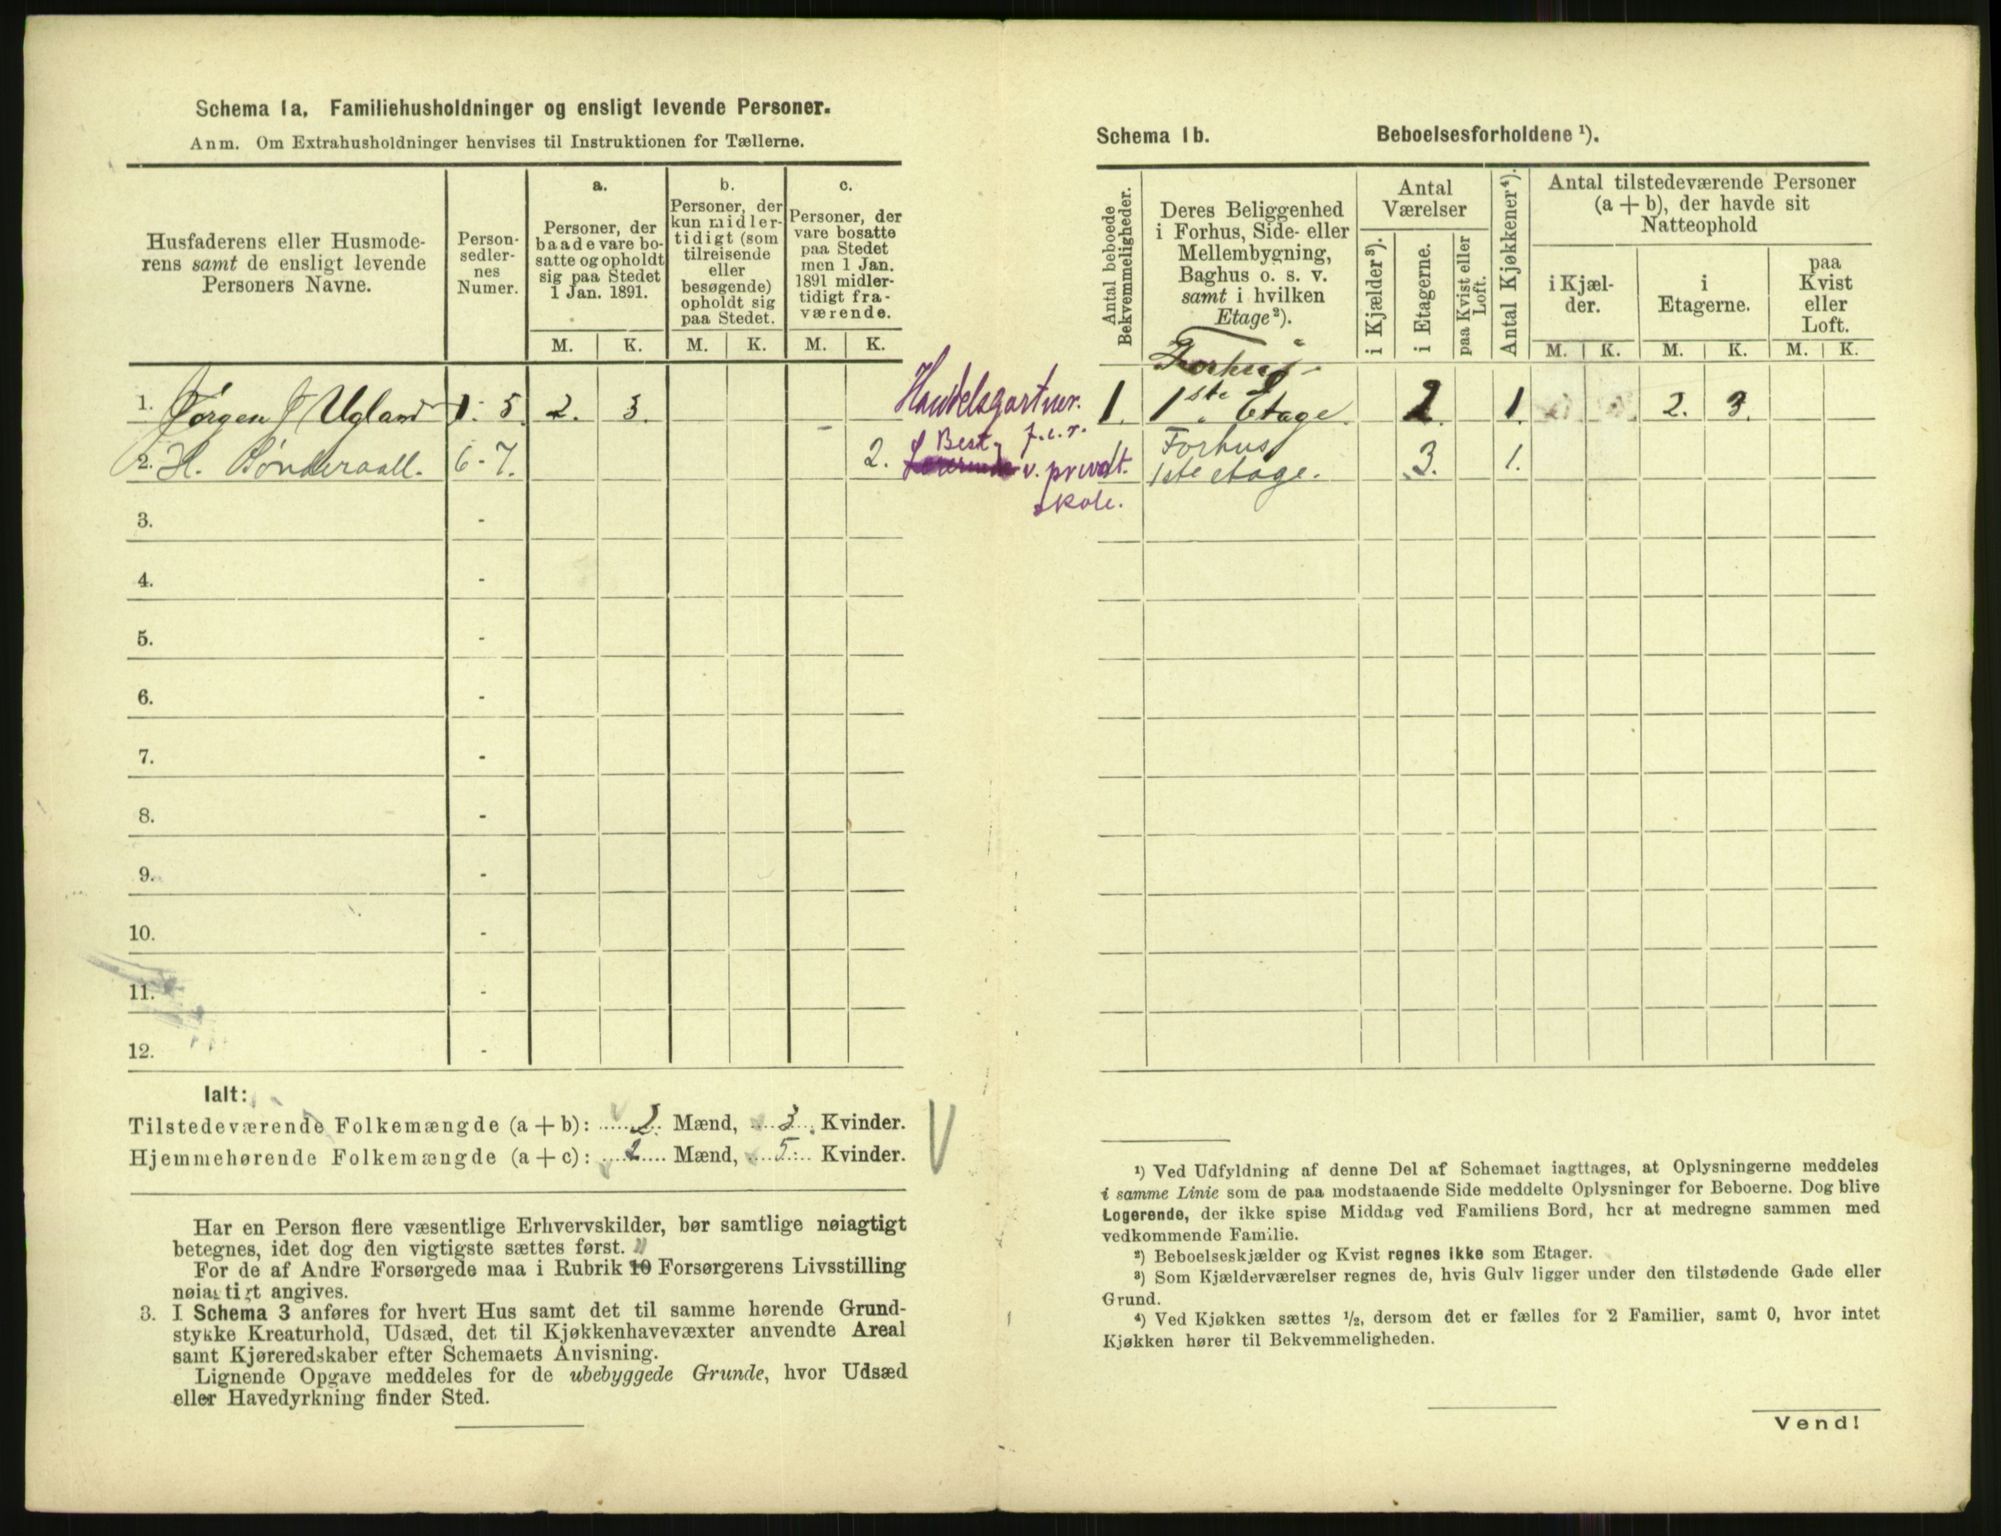 Schema 1a. Familiehusholdninger og ensligt levende Personer.
Anm. Om Extrahusholdninger henvises til Instruktionen for Tællerne.
Husfaderens eller Husmode-
rens samt de ensligt levende
Personers Navne.
Person-
sedler-
nes
Numer.
a.
Personer, der
baade vare bo-
satte og opholdt
sig paa Stedet
1 Jan. 1891.
b.
Personer, der
kun midler-
tidigt (som
tilreisende
eller
besøgende)
opholdt sig
paa Stedet.
c.
Personer, der
vare bosatte
paa Stedet
men 1 Jan.
1891 midler-
tidigt fra-
værende.
M. K. M. K. M. K.
1. Jørgen J Ugland 1 - 5 2. 3. Handelsgartner.
2. H. Sønderaall. 6 - 7. 2. Best. f.e.r.
v. privat.
skole.
3. -
4. -
5. -
6. -
7. -
8. -
9. -
10. -
11. -
12. -
Ialt:
Tilstedeværende Folkemængde (a + b): 2. Mænd, 3. Kvinder.
Hjemmehørende Folkemængde (a + c): 2 Mænd, 5. Kvinder.
Har en Person flere væsentlige Erhvervskilder, bør samtlige nøiagtigt
betegnes, idet dog den vigtigste sættes først.
For de af Andre Forsørgede maa i Rubrik 10 Forsørgerens Livsstilling
nøiagtigt angives.
3. I Schema 3 anføres for hvert Hus samt det til samme hørende Grund-
stykke Kreaturhold, Udsæd, det til Kjøkkenhavevæxter anvendte Areal
samt Kjøreredskaber efter Schemaets Anvisning.
Lignende Opgave meddeles for de ubebyggede Grunde, hvor Udsæd
eller Havedyrkning finder Sted.
Schema 1b. Beboelsesforholdene ¹).
Antal beboede
Bekvemmeligheder.
Deres Beliggenhed
i Forhus, Side- eller
Mellembygning,
Baghus o. s. v.
samt i hvilken
Etage²).
Antal
Værelser
i Kjælder³).
i Etagerne.
paa Kvist eller
Loft.
Antal Kjøkkener⁴).
Antal tilstedeværende Personer
(a + b), der havde sit
Natteophold
i Kjæl-
der.
i
Etagerne.
paa
Kvist
eller
Loft.
M. K. M. K. M. K.
Forhus
1. 1ste Etage. 2. 1. 2. 3.
Forhus
1ste etage. 3. 1.
¹) Ved Udfyldning af denne Del af Schemaet iagttages, at Oplysningerne meddeles
i samme Linie som de paa modstaaende Side meddelte Oplysninger for Beboerne. Dog blive
Logerende, der ikke spise Middag ved Familiens Bord, her at medregne sammen med
vedkommende Familie.
²) Beboelseskjælder og Kvist regnes ikke som Etager.
³) Som Kjælderværelser regnes de, hvis Gulv ligger under den tilstødende Gade eller
Grund.
⁴) Ved Kjøkken sættes ½, dersom det er fælles for 2 Familier, samt 0, hvor intet
Kjøkken hører til Bekvemmeligheden.
Vend!